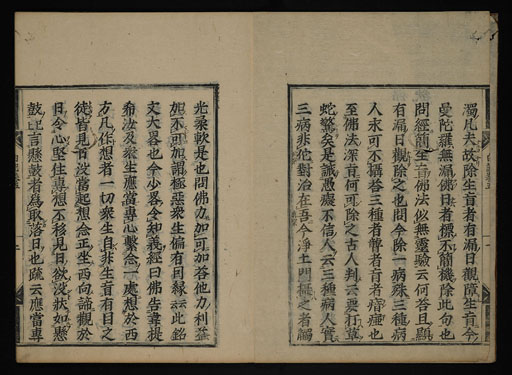 濁凡夫故除生盲者有漏日觀障生盲今
曼陀羅無漏佛日者標不簡機除此句也
問經簡全盲佛法似無靈驗云何答且顯
有漏日觀除之也問今除一病殊三種病
人永可不攝答三種者聾者盲者瘖瘂也
至佛法深旨何可除之古人判云要打草
蛇驚矣是誡愚癡不信人云三種病人實
三病非定對治在吾今淨土門極之者觸
光柔軟是也問佛力如可加答他力利益
加不可加謂極惡衆生偏有因緣云此銘
文大畧也今少畧令知義經曰佛告韋提
希汝及衆生應當專心繫念一處想於西
方凡作想者一切衆生自非生盲有目之
徒皆見日没當起想念正坐西向諦觀於
日令心堅住專想不移見日欲没狀如懸
鼓已言懸鼓者爲取落日也䟽云應當專